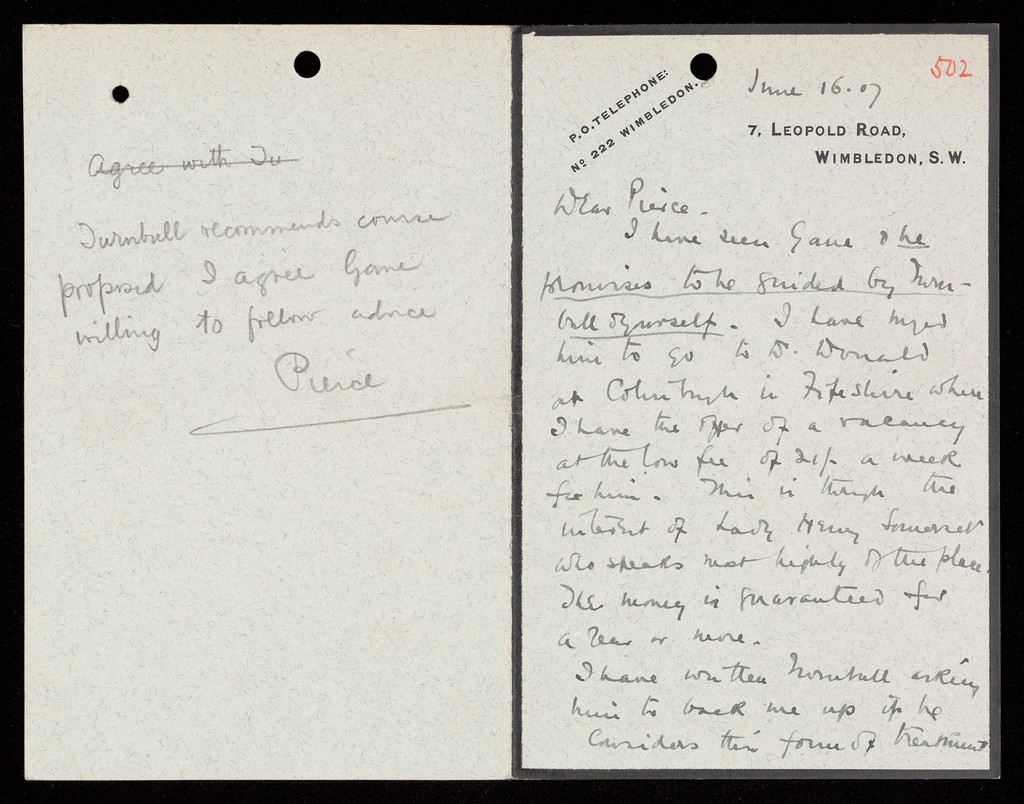 Agree with Tu
Turnbull recommends course
proposed I agree Gane
willing to follow advice
Pierce
502
June 16.07
P.O. TELEPHONE:
No 222 WIMBLEDON.
7, LEOPOLD ROAD,
WIMBLEDON, S.W.
Dear Pierce.
I have seen Gane & he
promises to be guided by Turn-
bull & yourself. I have urged
him to go to D. Donald
at in Fifeshire where
I have the offer of a vacancy
at the low fee of 21/- a week
for him. This is through the
interest of Lady Henry Somerset
who speaks most highly of the place.
The money is guaranteed for
a year or more.
I have written Turnbull asking
him to back me up if he
considers this form of treatment